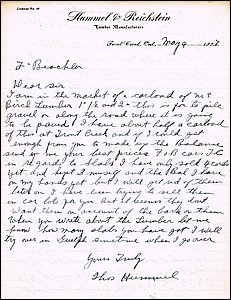 License No. 44
Hummel & Reichstein
Lumber Manufacturers
Trout Creek, Ont. May 9 1927
F Beachler
Dear sir
I am in the market of a carload of No 3
Birch Lumber 1" 1½ and 2" this is for to pile
gravel on along the road where it is going
to be paved I have about half a carload
of this at Trout Creek and if I could get
enough from you to make up the Balance
send me your best prices F.O.B. cars
in regards to slabs I have only sold 4 cords
yet and kept 1 myself and the Ball I have
on my hands yet but I will get rid of them
later on I have been trying to sell them
in car lots for you but it seems they dont
want them on account of the bark on them
when you write about the Lumber let me
know how many slabs you have got I will
try over in Guelph sometime when I go over
Yours Truly
Thos Hummel